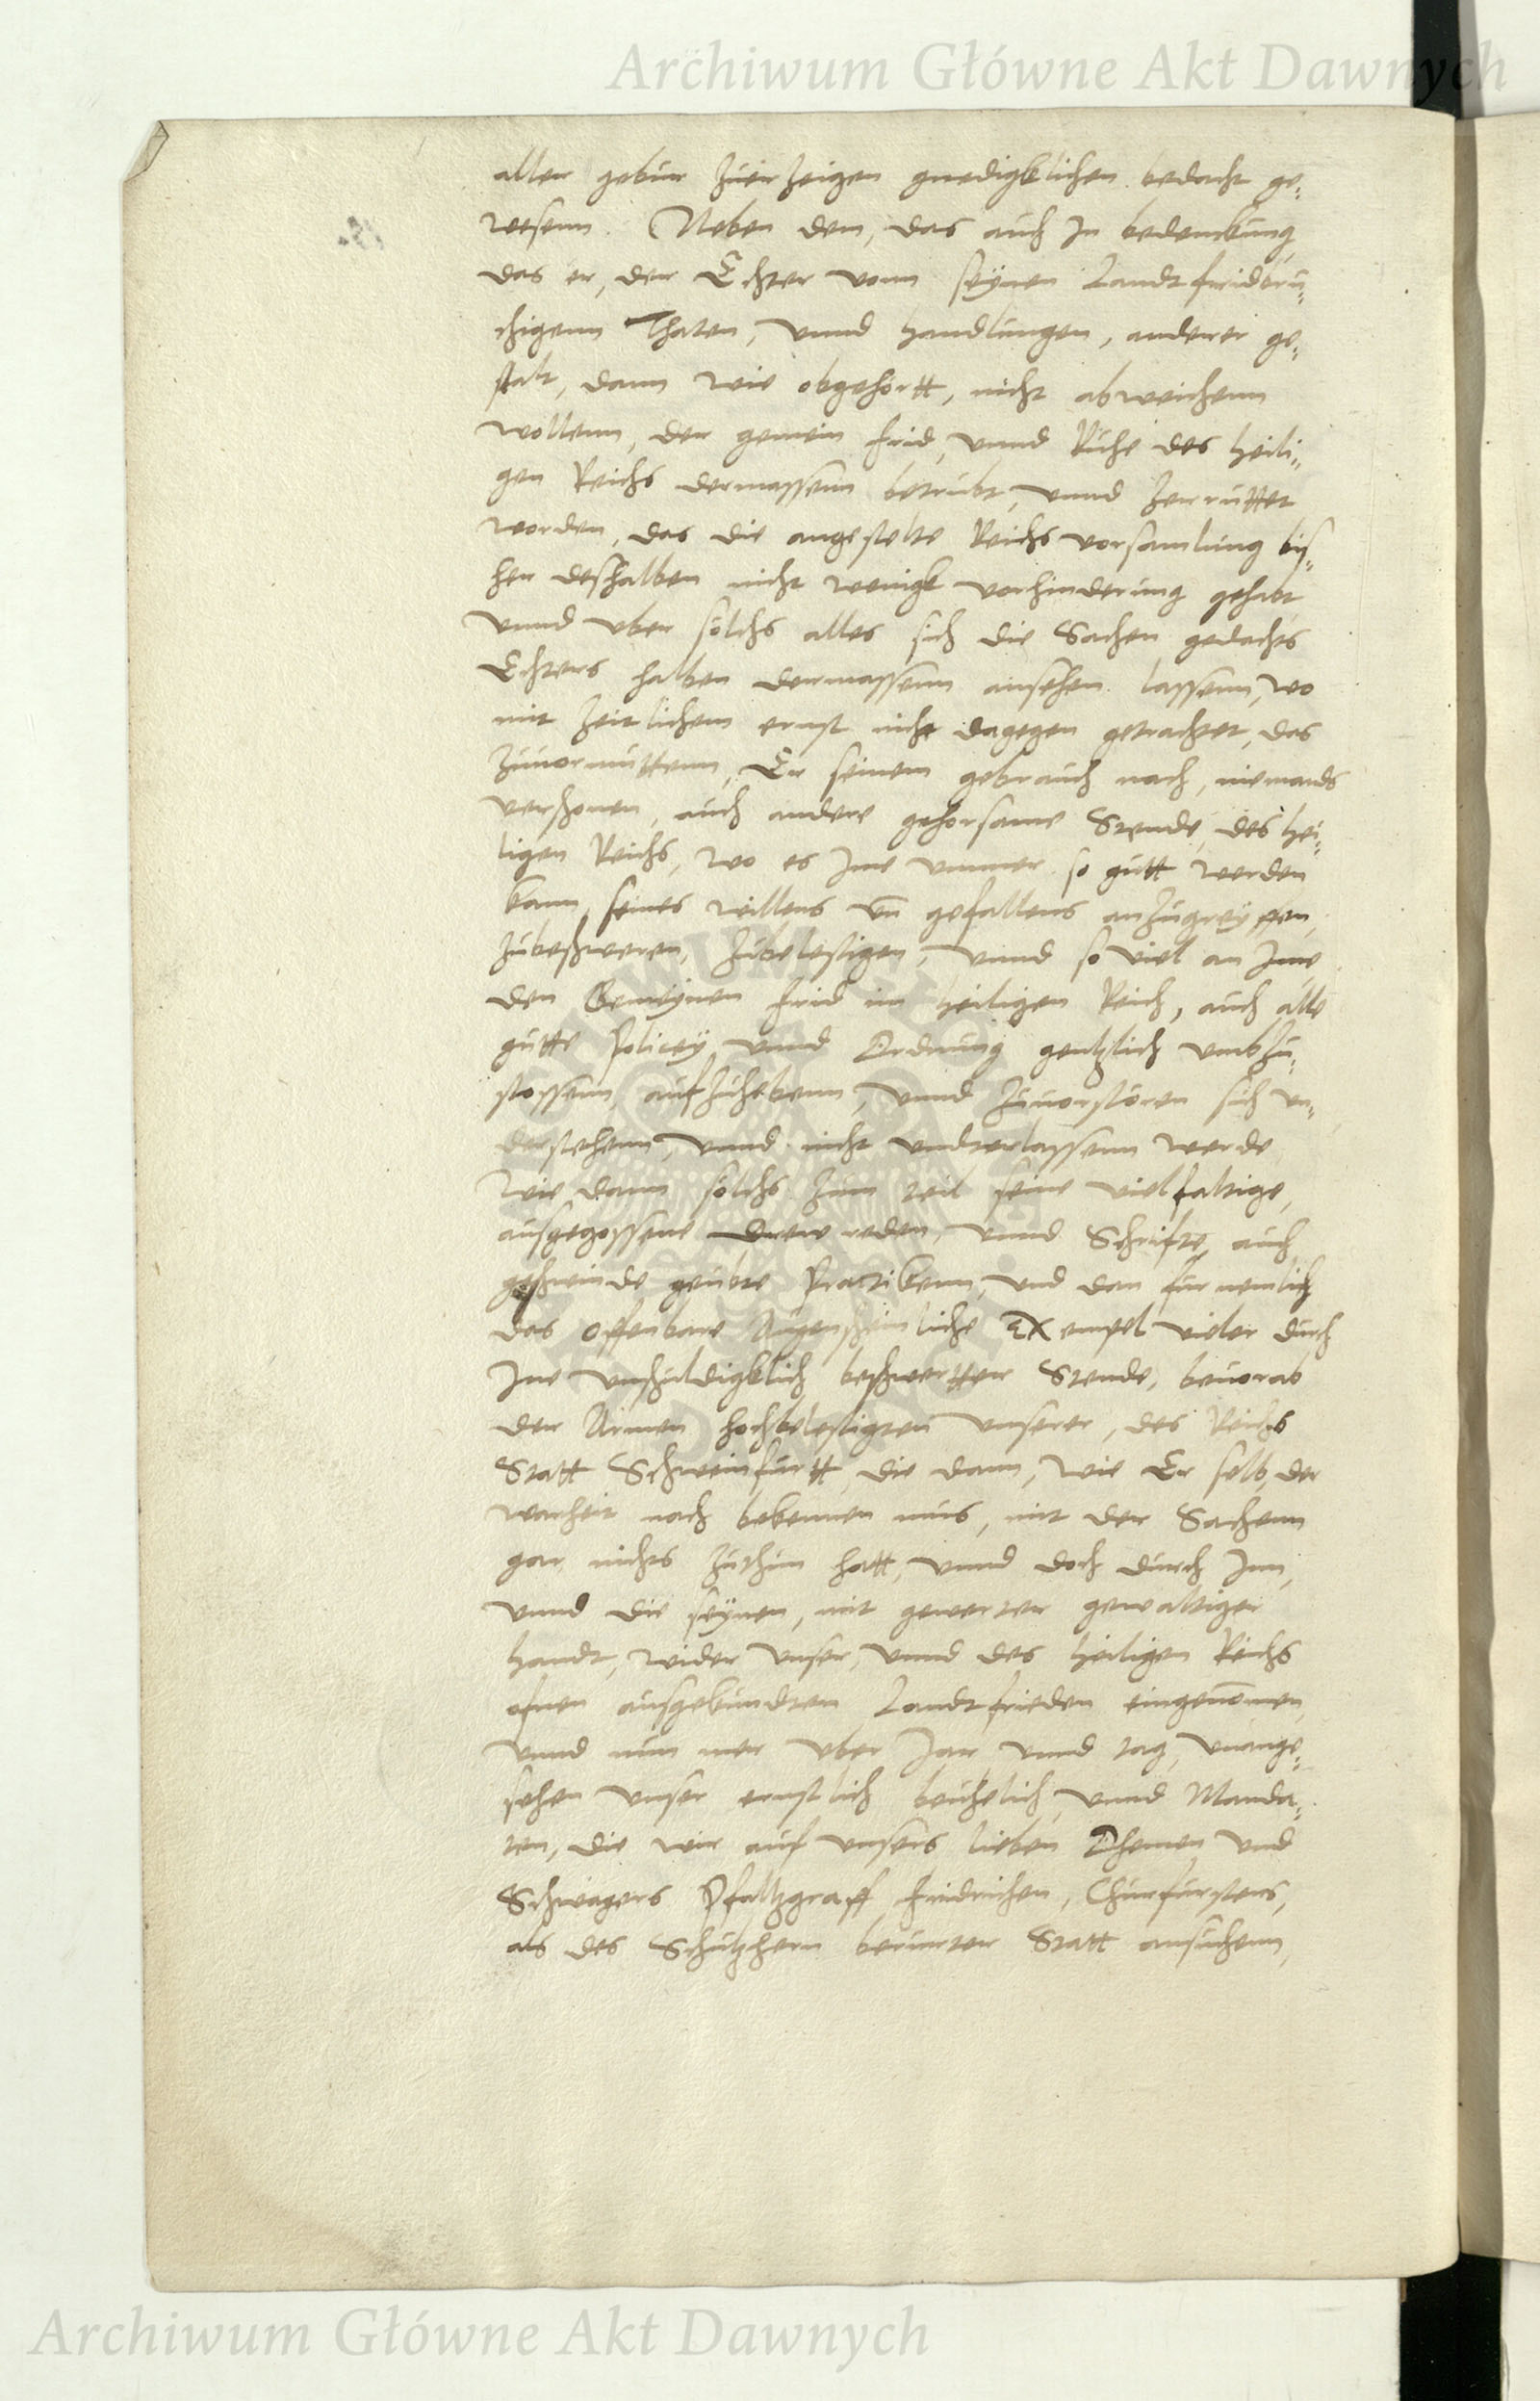 Archiwum Główne Akt Dawnych
aller gebür zuerzeigen gnedigklichen bedacht ge-
wesenn. Neben dem, das auch In bedenckung,
das er, der Echter vonn seÿnen Landtfridbrü-
chigenn Thaten, vnnd handlungen, anderer ge-
stalt, dann wie obgehortt, nicht abweichenn
wollenn, der gemein frid, vnnd Ruhe des heili-
gen Reichs dermassenn betrübt, vnnd zerrüttet
worden, das die angestelte Reichs vorsamlung bis-
her deshalben nicht wenigk vorhinderung gehabt,
vnnd vber solchs alles sich die Sachen gedachts
Echters halben dermassenn ansehen lassenn, wo
mit zeitlichem ernst nicht dagegen getrachtet, das
zuuormuttenn, Er seinem gebrauch nach, niemands
verschonen, auch andere gehorsame Stende, des hei-
ligen Reichs, wo es Ime ymmer so gutt werden
kann, seines willens vn̄ gefallens anzugreÿffen,
zubeschweren, zubelestigen, vnnd so viel an Ime
den Gemeÿnen frid im heiligen Reich, auch alle
gutte Policeÿ vnnd Ordnung gentzlich vmbzu-
stossenn, aufzuhebenn, vnnd zuuorstören sich vn-
derstehenn, vnnd nicht vndterlassenn werde
Wie dann solchs zum teil seine vielfaltige,
ausgegossene drew reden, vnnd Schrifte, auch
geschwinde geübte Practikenn, vnd dan fürnemlich
das offenbare Augenscheinliche Exempel vieler durch
Ine vnschuldigklich beschwertter Stende, beuorab
der Armen hochbelestigten vnserer, des Reichs
Statt Schweinfurtt, die dann, wie Er selb, der
warheit nach bekennen mus, mit der Sachenn
gar nichts zuthun hatt, vnnd doch durch Inn,
vnnd die seÿnen, mit gewerter gewaltiger
handt, wider vnser, vnnd des heiligen Reichs
ofnen ausgekündten Landtfrieden eingenōmen,
vnnd nun mer vber Jar vnnd tag, vnange-
sehen vnser ernstlich beuhelich, vnnd Manda-
ten, die wir auf vnsers lieben Ohemen vnd
Schwagers Pfaltzgraff fridrichen, Churfürstens,
als des Schutzhern berürter Statt ansuchenn,
Archiwum Główne Akt Dawnych